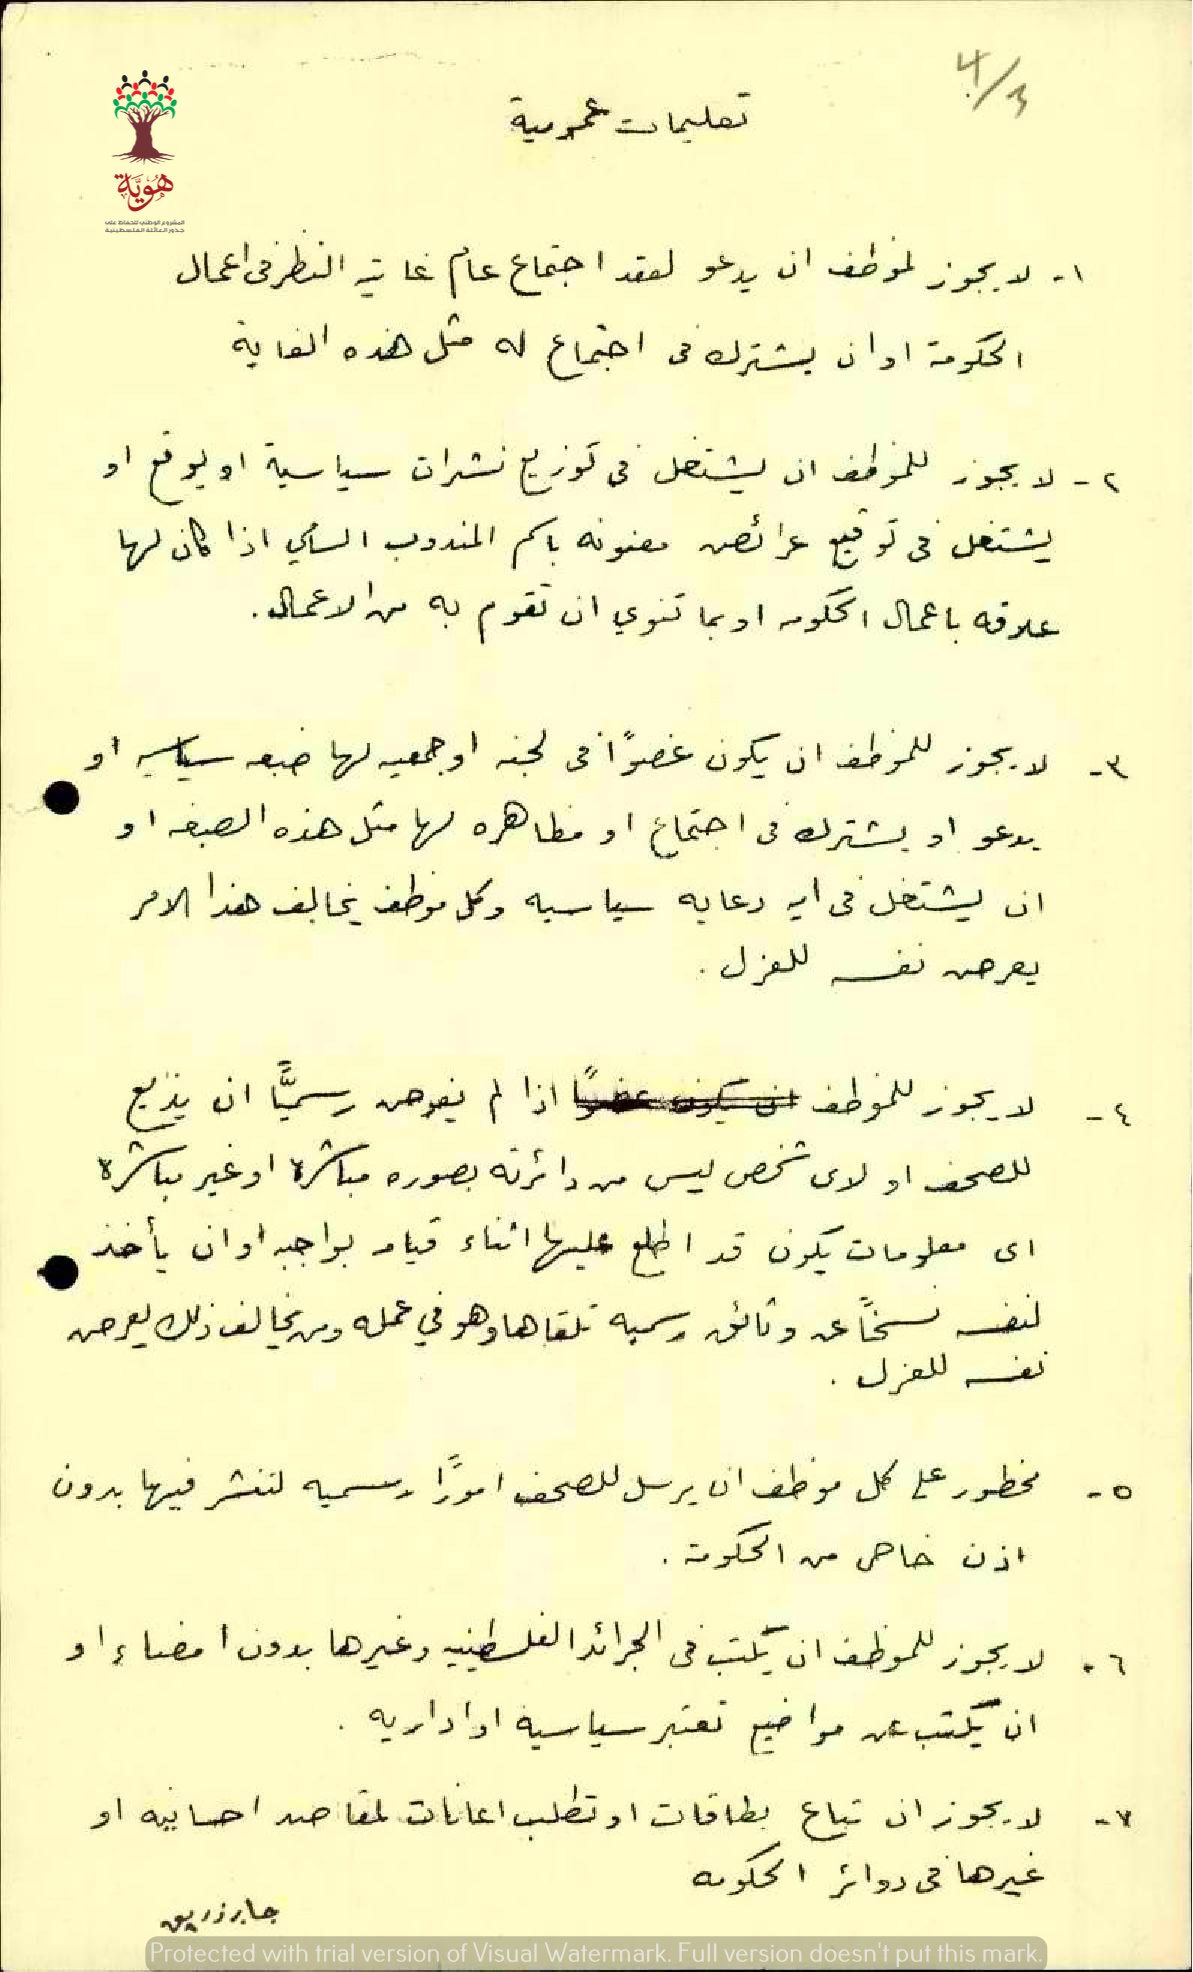 ٤/٣
تعليمات عمومية
هوية
المشروع الوطني للحفاظ على
جذور العائلة الفلسطينية
١- لا يجوز لموظف ان يدعو لعقد اجتماع عام غايته النظر في اعمال
الحكومة او ان يشترك في اجتماع له مثل هذه الغاية
٢- لا يجوز للموظف ان يشتغل في توزيع نشرات سياسية او يوقع او
يشتغل في توقيع عرائض معنونه باسم المندوب السامي اذا كان لها
علاقه باعمال الحكومه او بما تنوي ان تقوم به من الاعمال.
٣- لا يجوز للموظف ان يكون عضوًا في لجنه او جمعيه لها صبغه سياسيه او
يدعو او يشترك في اجتماع او مظاهره لها مثل هذه الصبغه او
ان يشتغل في ايه دعايه سياسيه وكل موظف يخالف هذا الامر
يعرض نفسه للعزل.
٤- لا يجوز للموظف ان يكون عضوًا اذا لم يفوض رسميًّا ان يذيع
للصحف او لاى شخص ليس من دائرته بصوره مباشرة او غير مباشرة
اى معلومات يكون قد اطلع عليها اثناء قيامه بواجبه او ان يأخذ
لنفسه نسخًا عن وثائق رسميه تلقاها وهو في عمله ومن يخالف ذلك يعرض
نفسه للعزل.
٥- محظور على كل موظف ان يرسل للصحف امورًا رسميه لتنشر فيها بدون
اذن خاص من الحكومة.
٦- لا يجوز للموظف ان يكتب في الجرائد الفلسطينيه وغيرها بدون امضاء او
ان يكتب عن مواضيع تعتبر سياسية او اداريه.
٧- لا يجوز ان تباع بطاقات او تطلب اعانات لمقاصد احسانيه او
غيرها في دوائر الحكومه
جابر زريق
Protected with trial version of Visual Watermark. Full version doesn't put this mark.